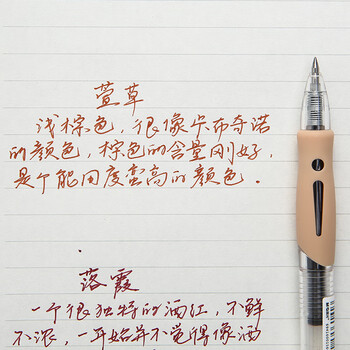 萱草
浅棕色，很像卡布奇诺
的颜色，棕色的含量刚好，
是个能用度蛮高的颜色．
落霞
一个很独特的酒红，不鲜
不浓，一开始并不觉得像酒